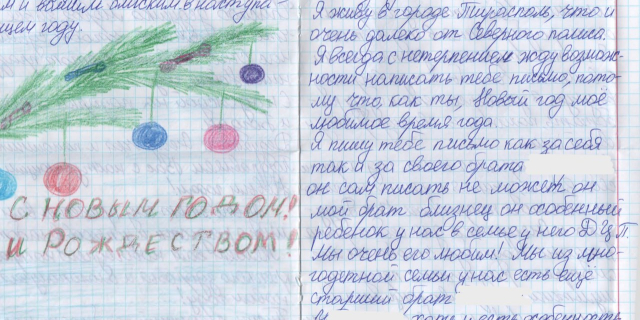 м и вашим близким в наступа-
щем году.
С НОВЫМ ГОДОМ!
И РОЖДЕСТВОМ!
Я живу в городе Тирасполь, что и
очень далеко от Северного полюса.
Я всегда с нетерпением жду возмож-
ности написать тебе письмо, пото-
му что, как ты, Новый год моё
любимое время года.
Я пишу тебе письмо как за себя
так и за своего брата
он сам писать не может он
мой брат близнец он особенный
ребёнок у нас в семье у него Д.Ц.П.
Мы очень его любим! Мы из мно-
годетной семьи у нас есть ещё
старший брат
хоть и есть особенность